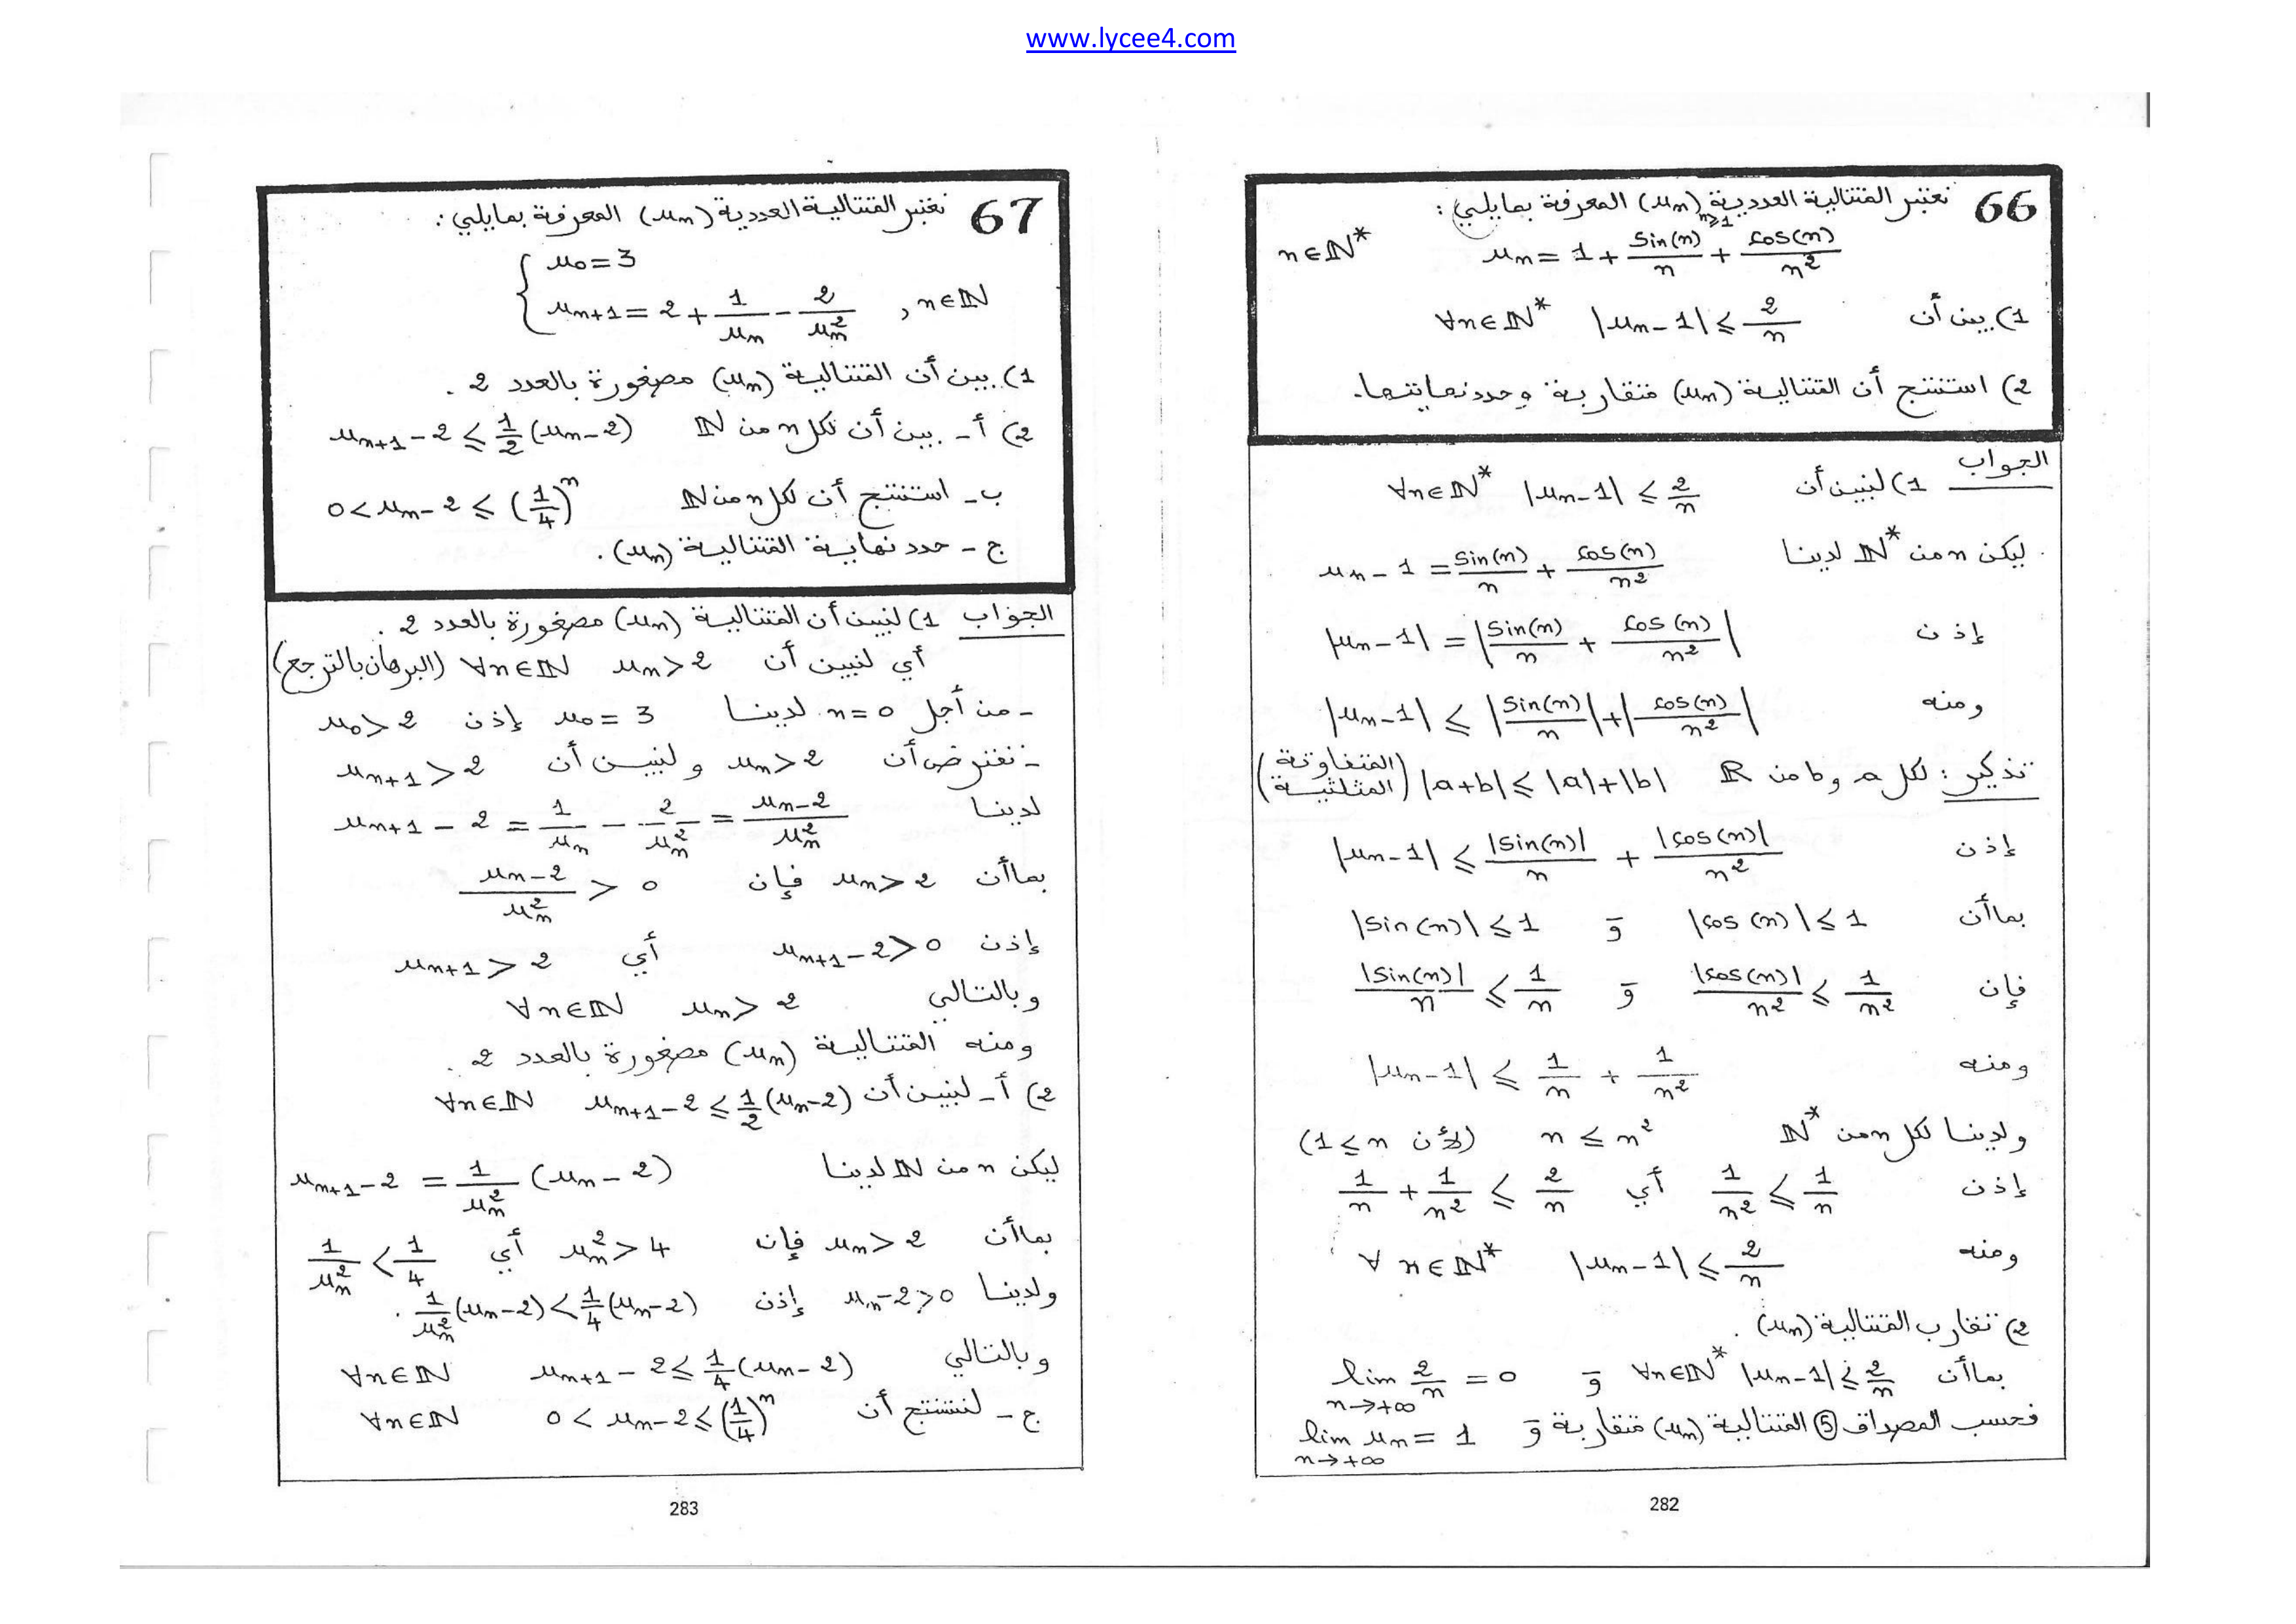 www.lycee4.com
66 نعتبر المتتالية العددية (u_n)_{n≥1} المعرفة بمايلي :
u_n = 1 + sin(n)/n + cos(n)/n² n∈ℕ*
1) بين أن ∀n∈ℕ* |u_n - 1| ≤ 2/n
2) استنتج أن المتتالية (u_n) متقاربة وحدد نهايتها.
الجواب 1) لنبين أن ∀n∈ℕ* |u_n - 1| ≤ 2/n
ليكن n من ℕ* لدينا u_n - 1 = sin(n)/n + cos(n)/n²
إذن |u_n - 1| = |sin(n)/n + cos(n)/n²|
ومنه |u_n - 1| ≤ |sin(n)/n| + |cos(n)/n²|
تذكير : لكل a و b من ℝ |a+b| ≤ |a|+|b| (المتفاوتة المثلثية)
إذن |u_n - 1| ≤ |sin(n)|/n + |cos(n)|/n²
بما أن |cos(n)| ≤ 1 و |sin(n)| ≤ 1
فإن |cos(n)|/n² ≤ 1/n² و |sin(n)|/n ≤ 1/n
ومنه |u_n - 1| ≤ 1/n + 1/n²
ولدينا لكل n من ℕ* n ≤ n² (لأن 1 ≤ n)
إذن 1/n² ≤ 1/n أي 1/n + 1/n² ≤ 2/n
ومنه ∀n∈ℕ* |u_n - 1| ≤ 2/n
2) تقارب المتتالية (u_n) .
بما أن ∀n∈ℕ* |u_n - 1| ≤ 2/n و lim_{n→+∞} 2/n = 0
فحسب المصداق ⑤ المتتالية (u_n) متقاربة و lim_{n→+∞} u_n = 1
282
67 نعتبر المتتالية العددية (u_n) المعرفة بمايلي :
u_0 = 3
u_{n+1} = 2 + 1/u_n - 2/u_n² , n∈ℕ
1) بين أن المتتالية (u_n) مصغورة بالعدد 2 .
2) أ - بين أن لكل n من ℕ u_{n+1} - 2 ≤ 1/2 (u_n - 2)
ب - استنتج أن لكل n من ℕ 0 < u_n - 2 ≤ (1/4)^n
ج - حدد نهاية المتتالية (u_n) .
الجواب 1) لنبين أن المتتالية (u_n) مصغورة بالعدد 2 .
أي لنبين أن ∀n∈ℕ u_n > 2 (البرهان بالترجع)
- من أجل n = 0 لدينا u_0 = 3 إذن u_0 > 2
- نفترض أن u_n > 2 ولنبين أن u_{n+1} > 2
لدينا u_{n+1} - 2 = 1/u_n - 2/u_n² = (u_n - 2)/u_n²
بما أن u_n > 2 فإن (u_n - 2)/u_n² > 0
إذن u_{n+1} - 2 > 0 أي u_{n+1} > 2
وبالتالي ∀n∈ℕ u_n > 2
ومنه المتتالية (u_n) مصغورة بالعدد 2 .
2) أ - لنبين أن u_{n+1} - 2 ≤ 1/2 (u_n - 2) ∀n∈ℕ
ليكن n من ℕ لدينا u_{n+1} - 2 = 1/u_n² (u_n - 2)
بما أن u_n > 2 فإن u_n² > 4 أي 1/u_n² < 1/4
ولدينا u_n - 2 > 0 إذن 1/u_n² (u_n - 2) < 1/4 (u_n - 2) .
وبالتالي u_{n+1} - 2 ≤ 1/4 (u_n - 2) ∀n∈ℕ
ج - لنستنتج أن 0 < u_n - 2 ≤ (1/4)^n ∀n∈ℕ
283